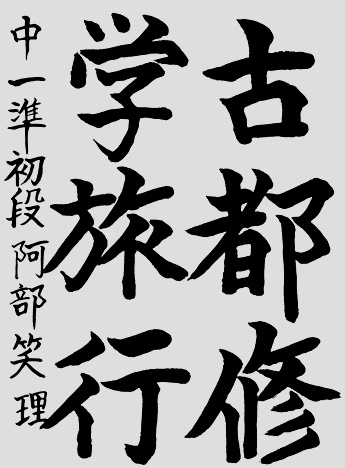 古都修
学旅行
中一準初段阿部笑理